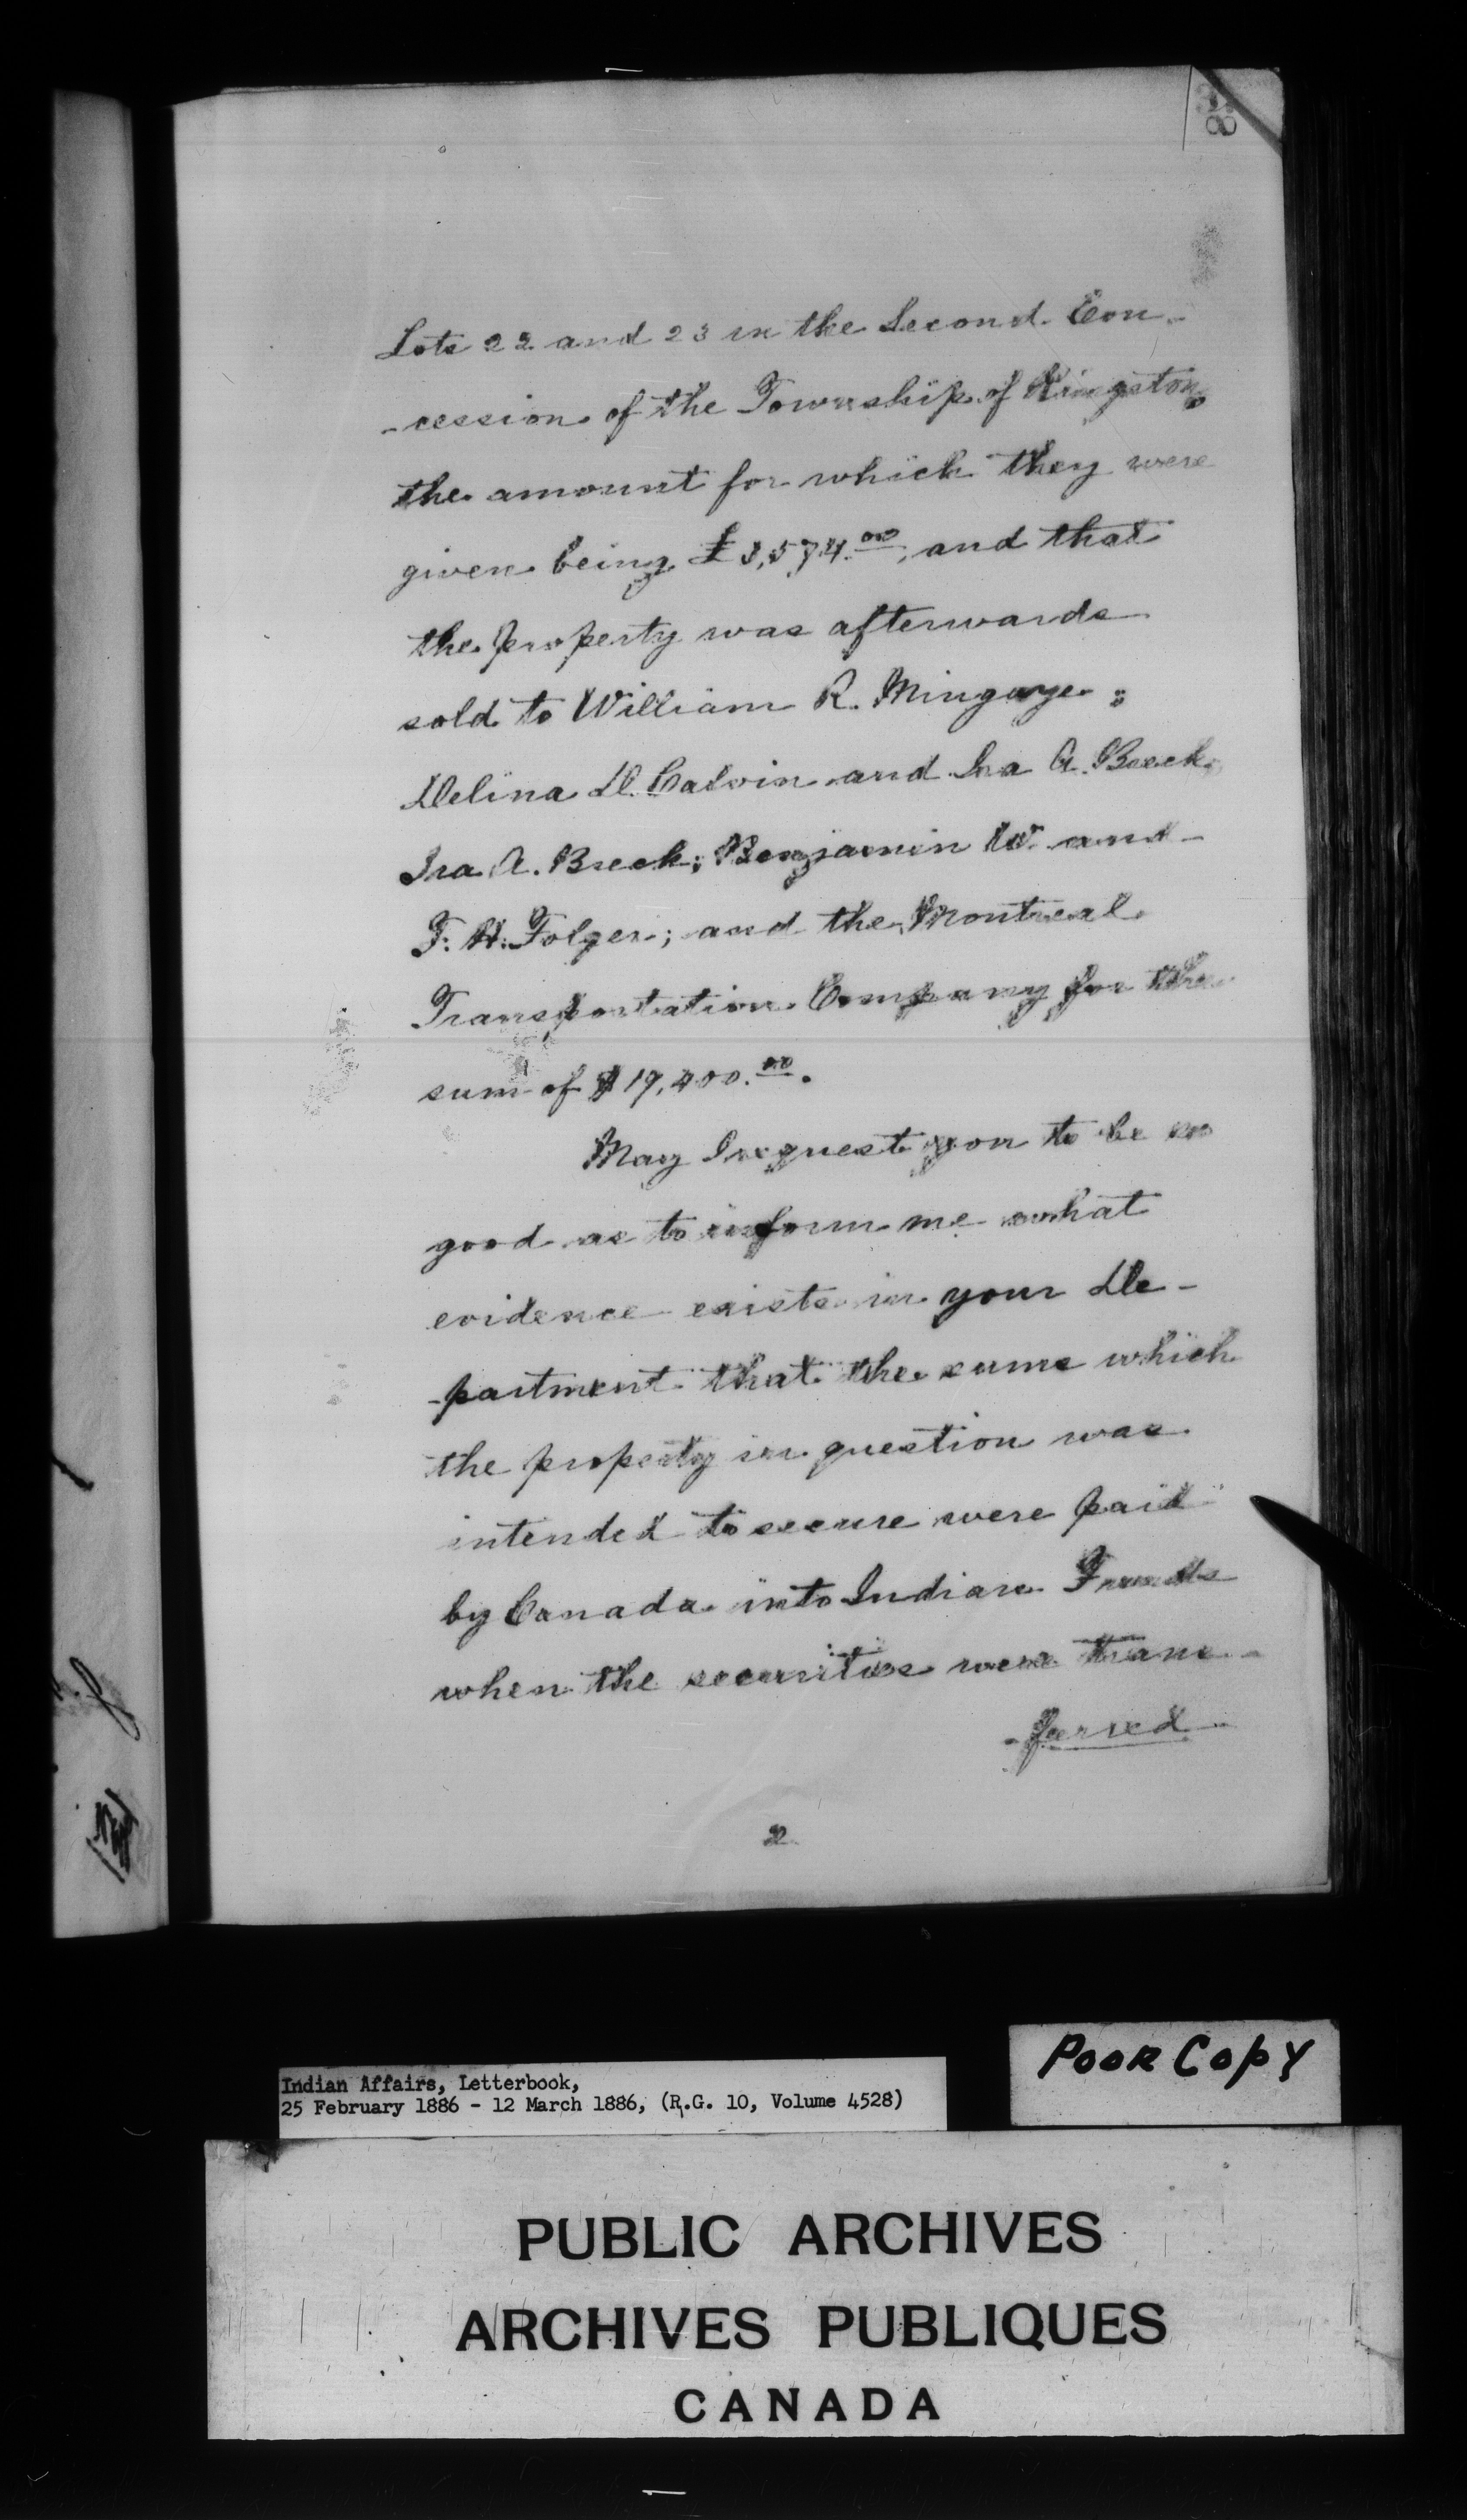 Lots 22 and 23 in the Second Con-
-cession of the Township of Kingston,
the amount for which they were
given being £3,574.00, and that
the property was afterwards
sold to William R. Mingaye;
Delina D. Calvin and Ira A. Breck;
Ira A. Breck; Benjamin W. and
F. H. Folger; and the Montreal
Transportation Company for the
sum of $19,400.00.
May I request you to be so
good as to inform me what
evidence exists in your De-
-partment that the sums which
the property in question was
intended to secure were paid
by Canada into Indian Funds
when the securities were trans-
-ferred
2
Poor Copy
Indian Affairs, Letterbook,
25 February 1886 - 12 March 1886, (R.G. 10, Volume 4528)
PUBLIC ARCHIVES
ARCHIVES PUBLIQUES
CANADA